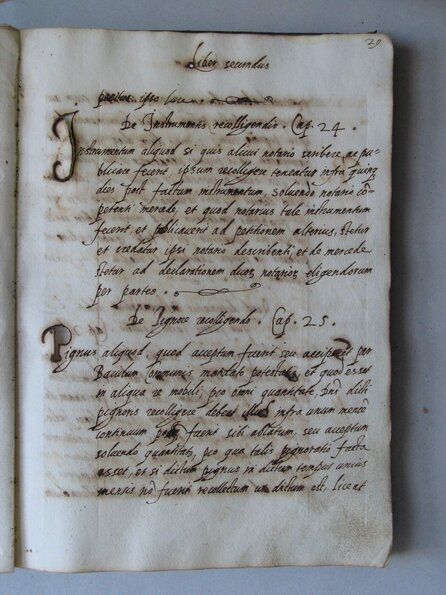 29
Liber secundus
penitus ipso iure.
De Instrumentis recolligendis. Cap. 24.
Instrumentum aliquod si quis alicui notario scribere, ac pu-
blicare fecerit, ipsum recolligere teneatur infra quinq
dies post factum instrumentum, solvendo notario cō-
petenti mercede, et quod notarius tale instrumentum
fecerit, et publicaverit ad petitionem alterius, stetur
et credatur ipsi notario describenti, et de mercede
stetur ad declarationem duor notarior eligendorum
per partes.
De Pignore recolligendo. Cap. 25.
Pignus aliquod, quod acceptum fuerit seu acciperet per
Baiulum Communis mandato potestatis, et quod esset
in aliqua re mobili, pro omni quantitate, dicti
pignoris recolligere debeat illud infra unum mensē
continuum fuerit sibi ablatum, seu acceptum
solvendo quantitatē, pro qua talis pignoratio facta
esset, et si dictum pignus in dictum tempus unius
mensis nō fuerit recollectum ut dictum est, liceat